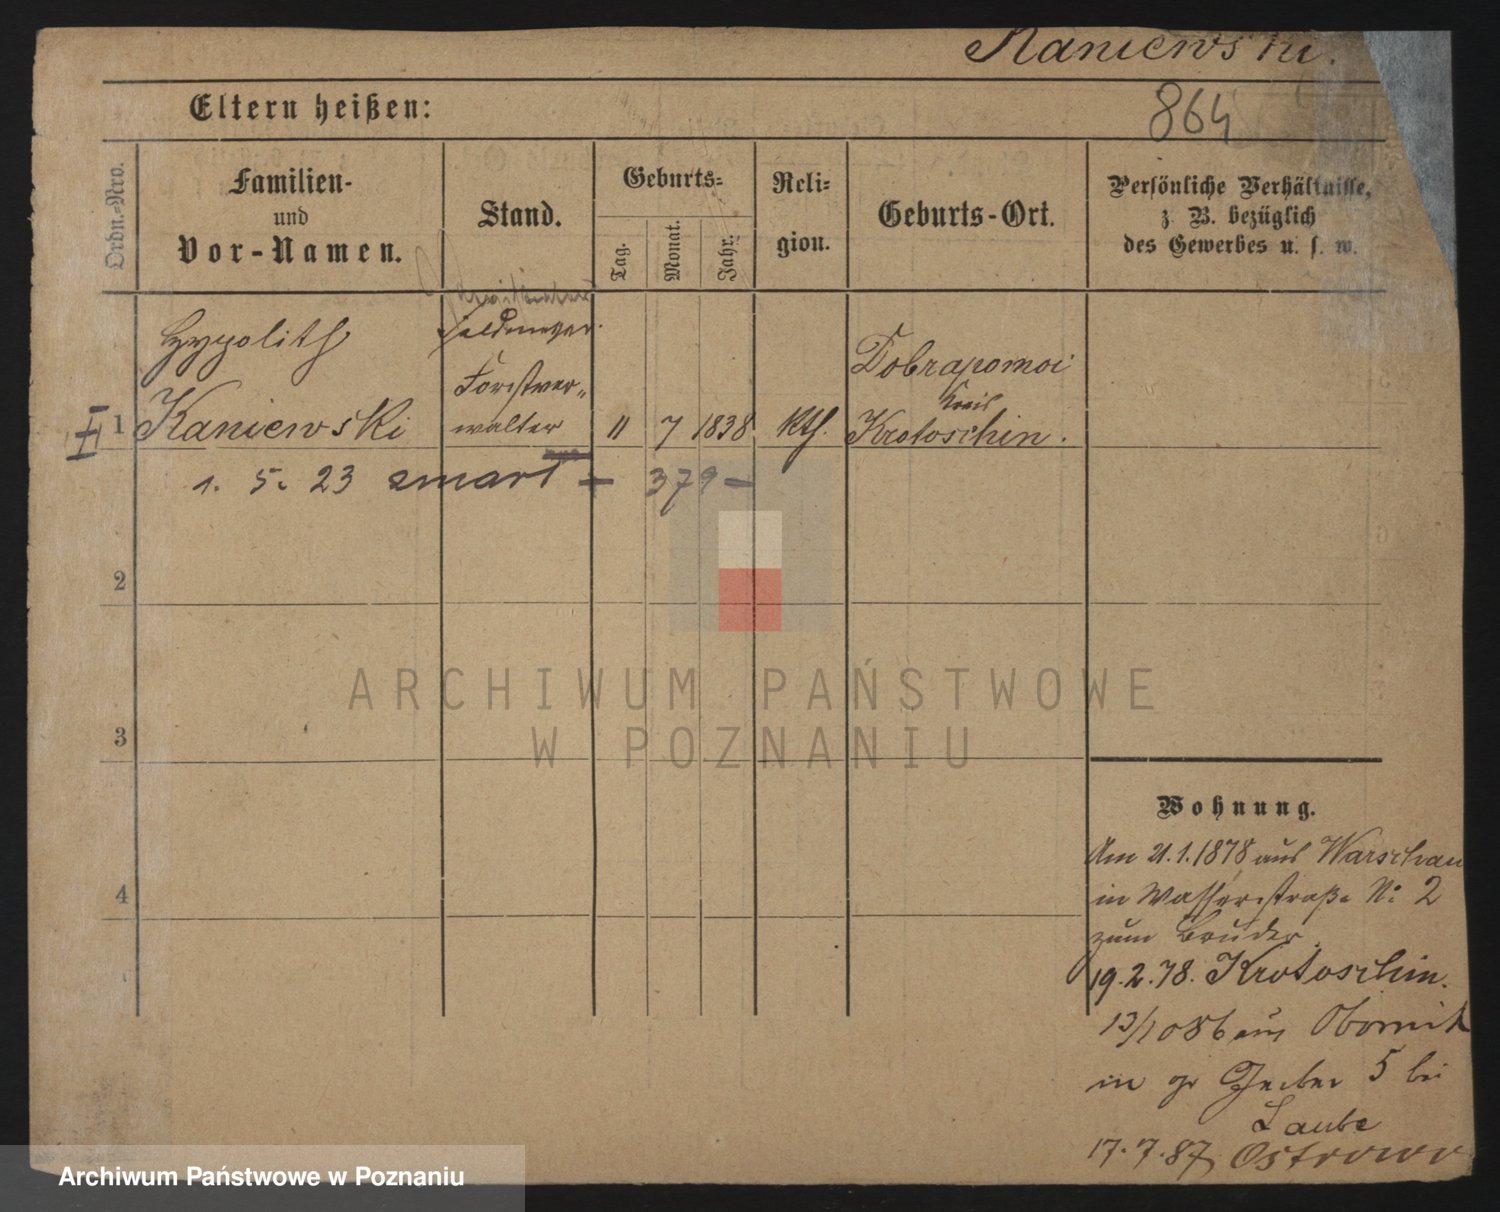 Kaniewski.
864
Eltern heißen:
Ordn.-Nro.
Familien-
und
Vor-Namen.
Stand.
Geburts-
Tag.
Monat.
Jahr.
Reli-
gion.
Geburts-Ort.
Persönliche Verhältnisse,
z. B. bezüglich
des Gewerbes u. s. w.
I 1
Hypolith
Kaniewski
Feldmesser
Forstver-
walter
11 7 1838
Kth.
Dobrapomoi
Kreis
Krotoschin.
1. 5. 23 zmarł - 379 -
2
3
4
Wohnung.
Am 21.1.1878 aus Warschau
in Wasserstraße No 2
zum Bruder.
19.2.78. Krotoschin.
13/10 86 aus Obornik
in gr Gerber 5 bei
Laube
17.7.87 Ostrowo
ARCHIWUM PAŃSTWOWE
W POZNANIU
Archiwum Państwowe w Poznaniu